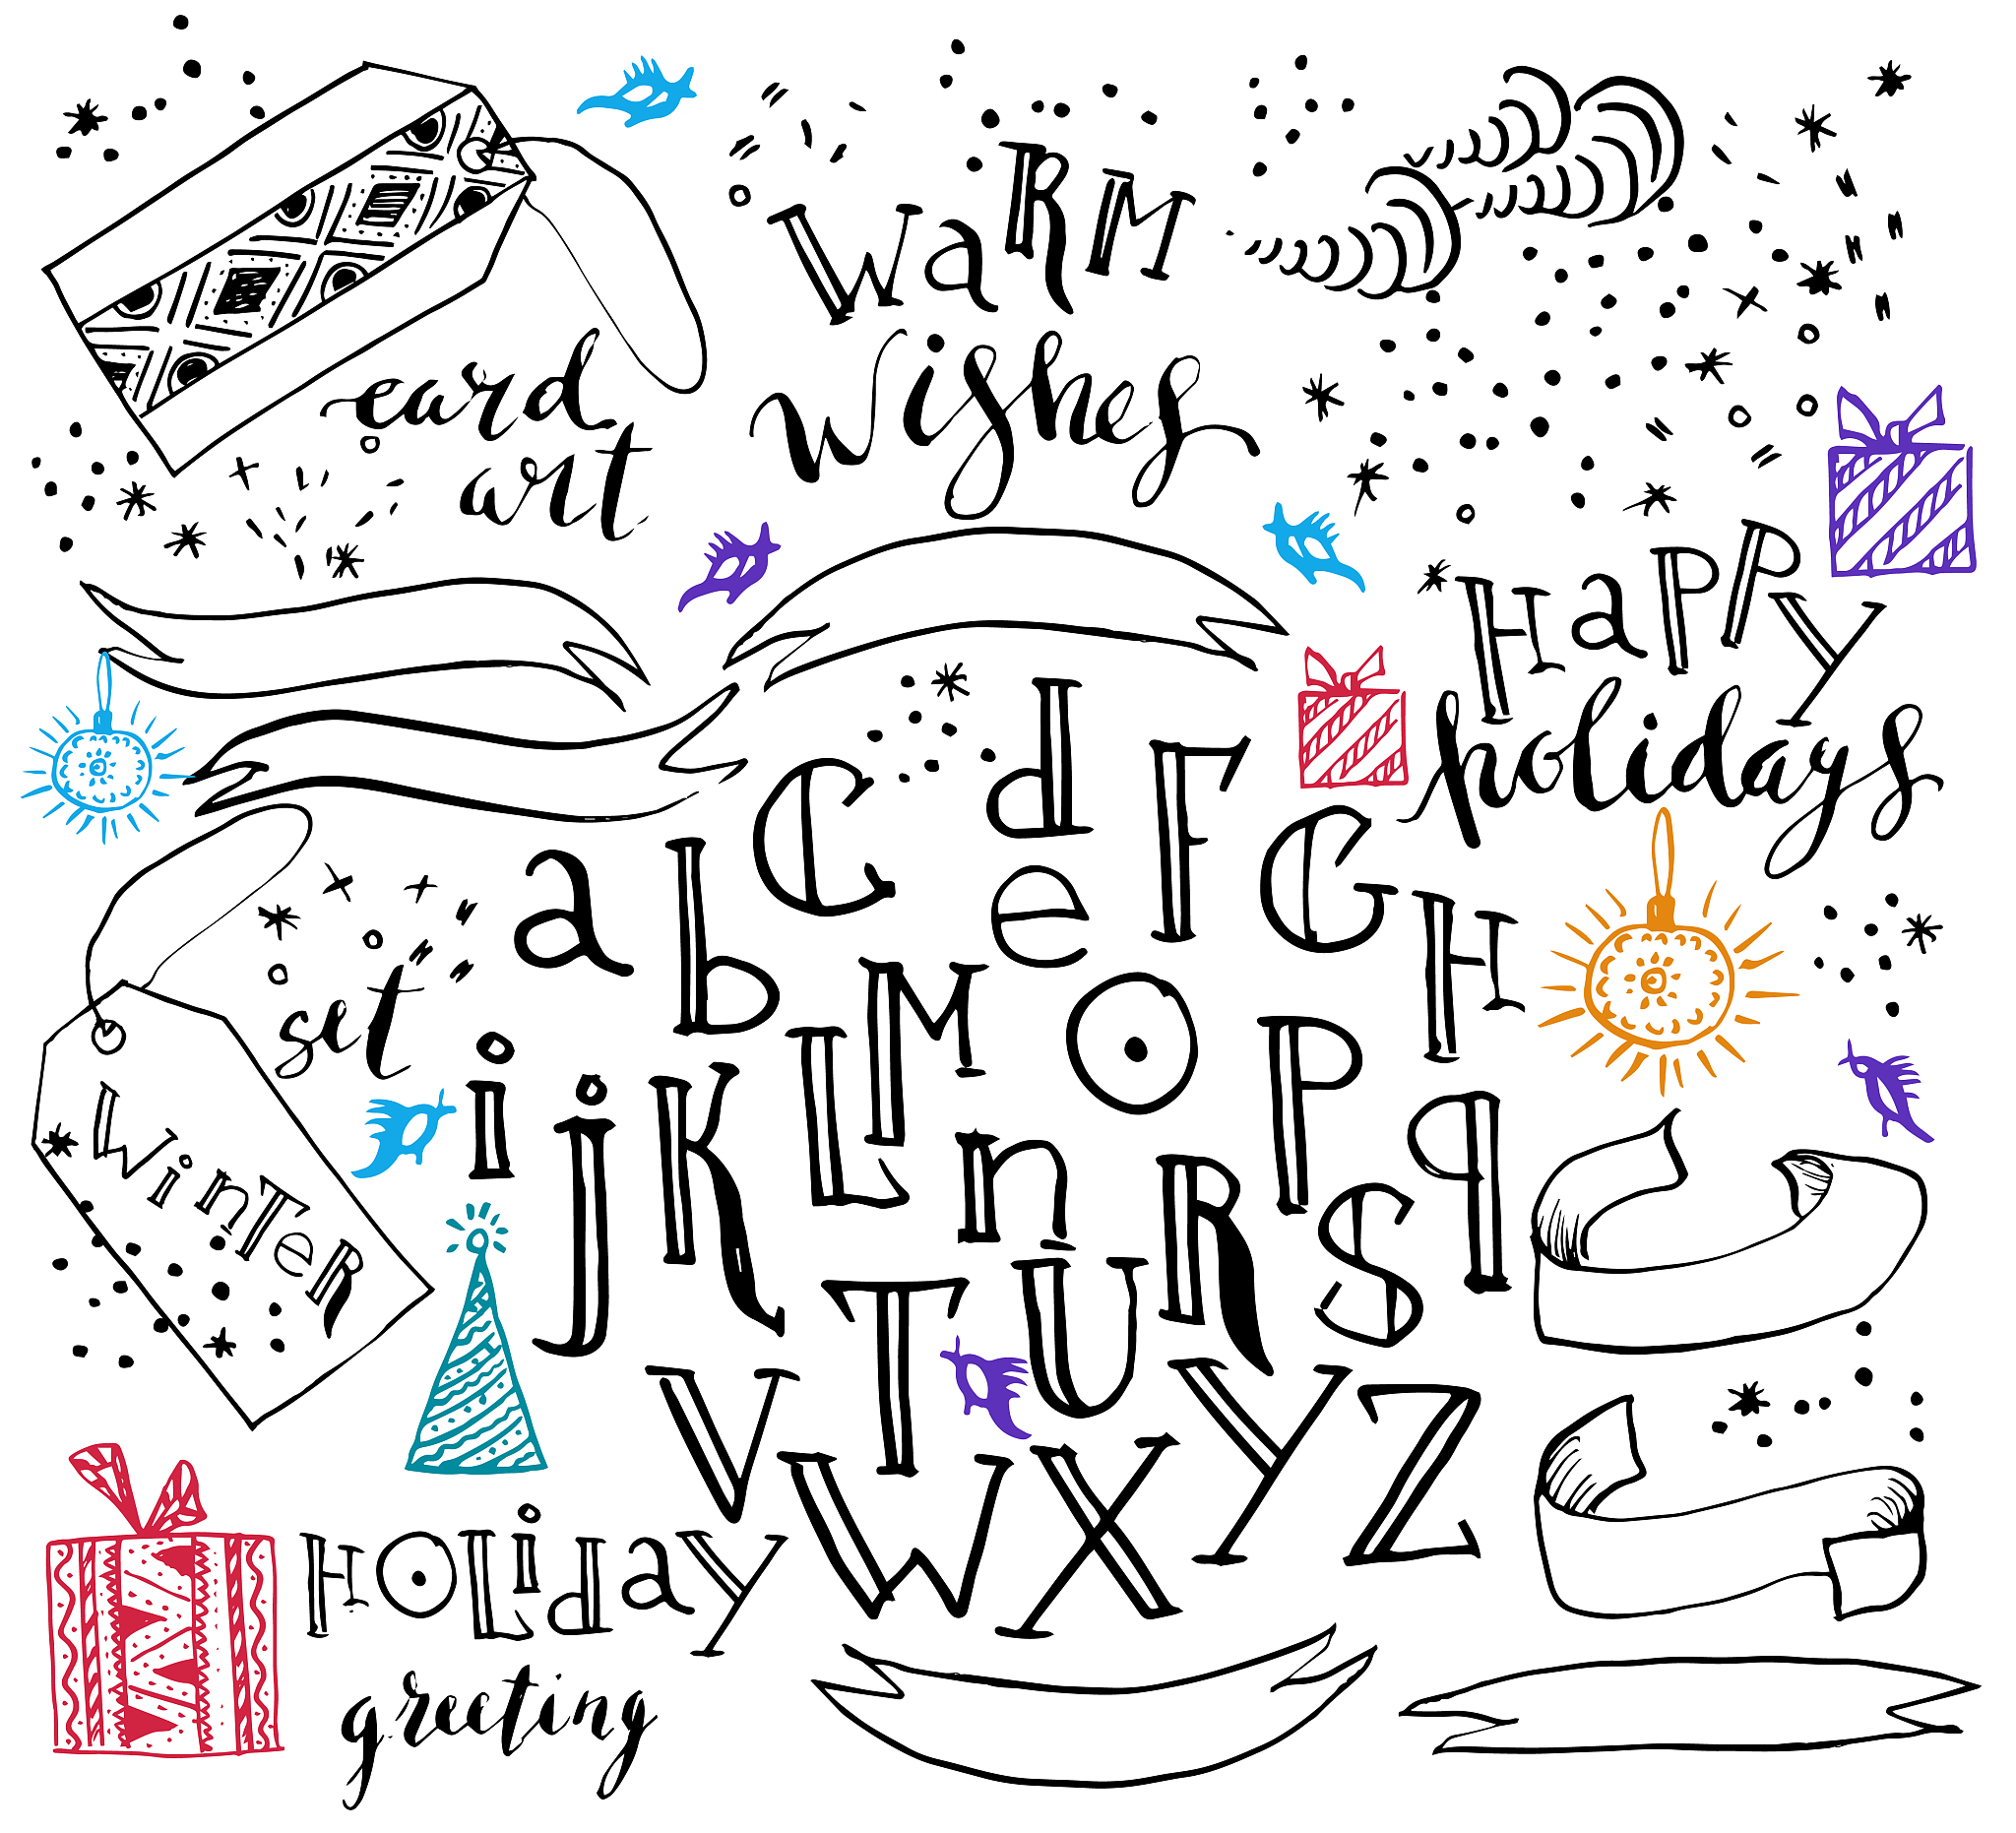 WaRM
wishes
card
art
HaPPY
holidays
a b C d e F G H
i j K L M n O P q R S
T U V W X Y Z
set
WinTeR
HOLidaY
greeting